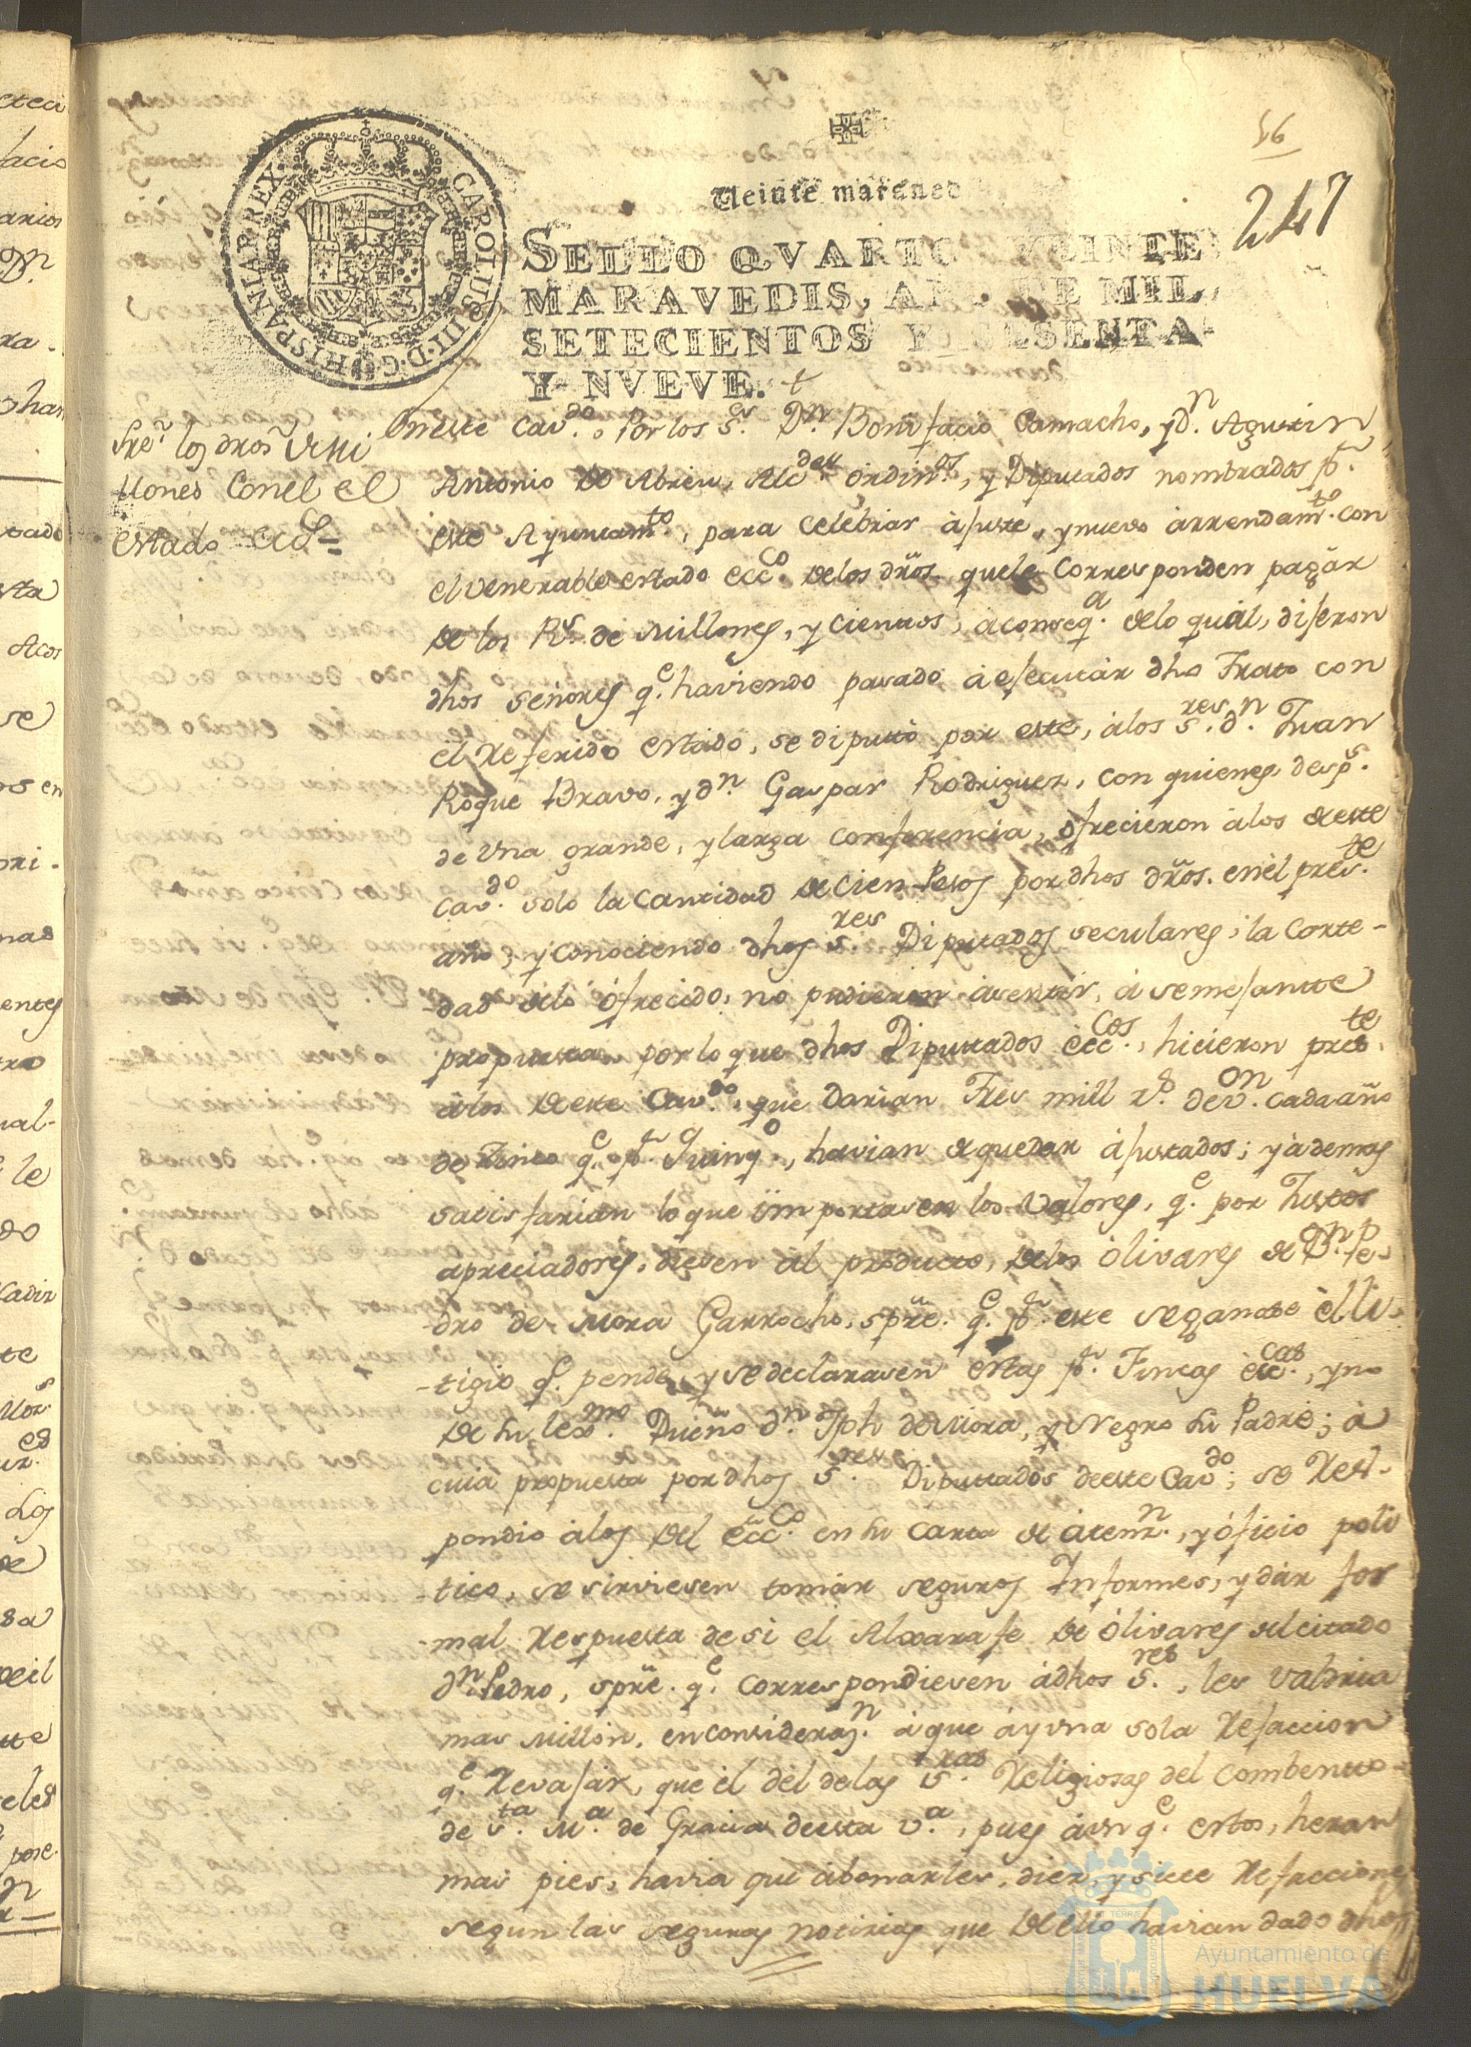 56
247
Veinte maraued
HISPANIAR REX. CAROLUS III D G
SELLO QVARTO VEINTE
MARAVEDIS, AÑO DE MIL
SETECIENTOS Y SESENTA
Y NVEVE.
Sre. los dros
Millones Con el el
estado ecc.
En este Cavdo. Por los Srs. Dn. Bonifacio Camacho, y Dn. Agustin
Antonio de Abreu, Alcdes ordinos, y Diputados nombrados pr.
este Ayuntamto, para celebrar ajuste, y nuevo arrendamto. con
el venerable estado eccco. de los dros. que le corresponden pagar
de los Rs. de Millones, y cientos, a conseqa. de lo qual, dijeron
dhos señores qe. haviendo pasado à ejecutar dho Trato con
el referido estado, se diputò por este, à los sres. dn. Juan
Roque Bravo, y dn. Gaspar Rodriguez, con quienes desps.
de una grande, y larga conferencia, ofrecieron à los de este
Cavdo. solo la cantidad de cien Pesos por dhos dros. en èl preste.
año, y conociendo dhos sres Diputados seculares, la corte-
dad de lo ofrecido, no pudieron asentir, à semejante
propuesta por lo que dhos Diputados ecccos., hicieron preste.
à los de este Cavdo. que darian Tres mill rs. de von. cada año
de Cinco qe. pr. Quinqo., havian de quedar ajustados; y àdemas
satisfarian lo que importasen los Valores, qe. por Justos
apreciadores, diesen al producto, de los olivares de Dn. Pe-
dro de Mora Garrocho, spre. qe. pr. este se ganase èl li-
tigio qe. pende, y se declarasen estas pr. Fincas ecccas., y no
de su lexmo. Dueño dn. Jph de Mora, y Negro su Padre; à
cuia propuesta por dhos Sres Diputados de este Cavdo; se res-
pondio à los del eccco. en su Carta de atenzn., y òficio poli
tico, se sirviesen tomar seguros Informes, y dàr for
-mal respuesta de si el Alxarafe de òlivares del citado
dn. Pedro, spre. qe. correspondiesen à dhos sres., les valdria
mas Millon, en considerazn. à que ày una sola refaccion
qe. revajàr, que èl del de las sras Religiosas del Combento
de sta. Ma. de Gracia de esta va., pues àun qe. estos, heran
mas pies, havia que abonarles, diez y siete refacciones
segun las seguras noticias que de ello havian dado dhos
Ayuntamiento de
HUELVA